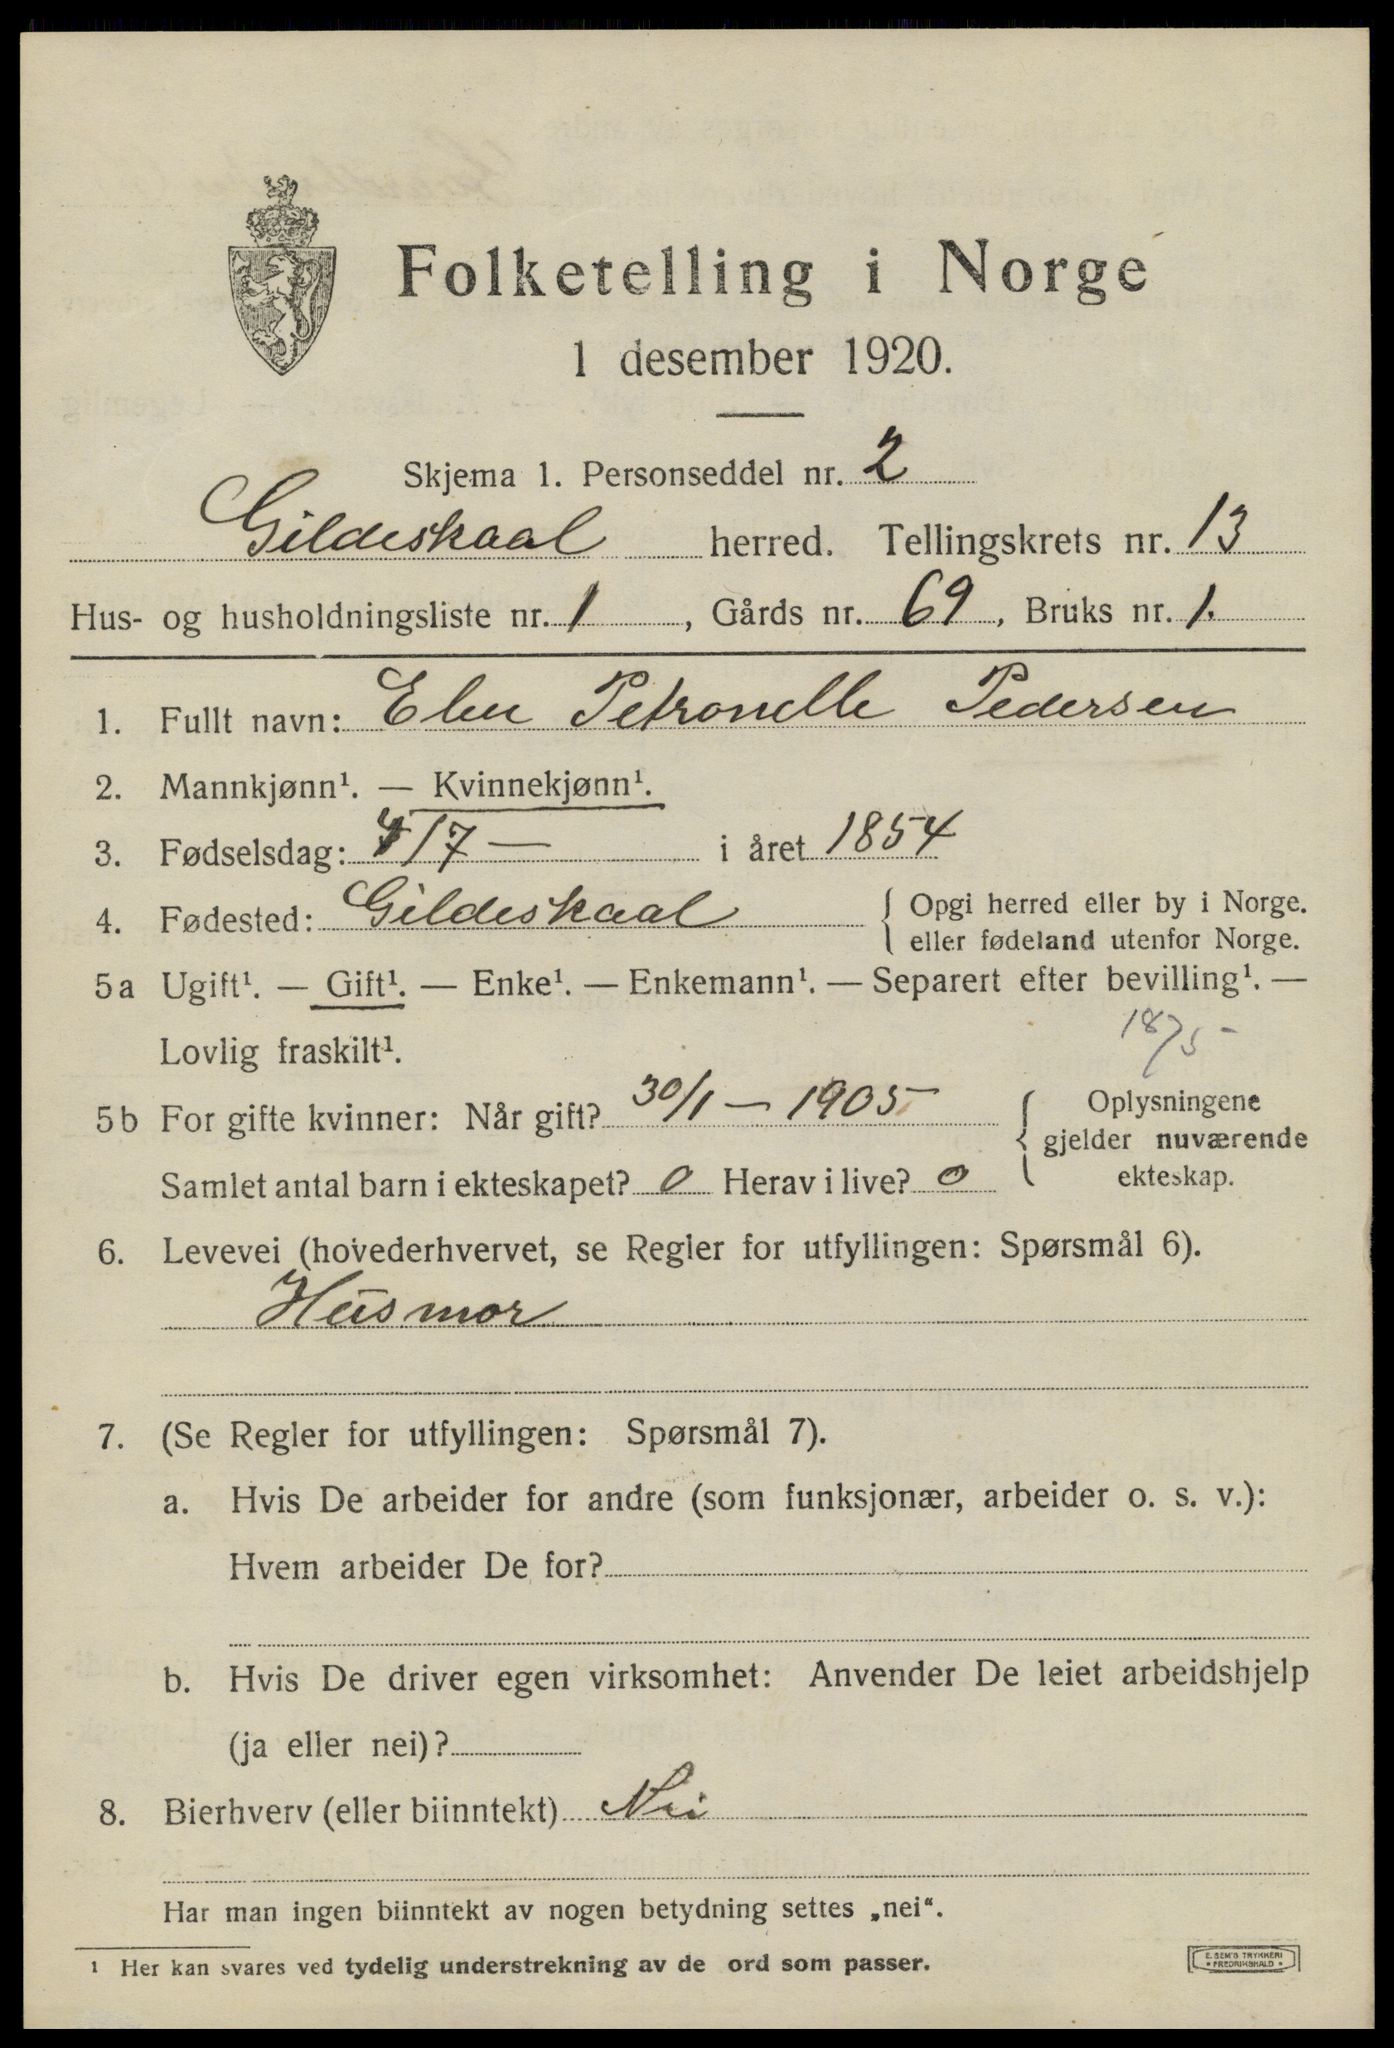 Folketelling i Norge
1 desember 1920.
Skjema 1. Personseddel nr. 2
Gildeskaal herred. Tellingskrets nr. 13
Hus- og husholdningsliste nr. 1, Gårds nr. 69, Bruks nr. 1.
1. Fullt navn: Elen Petronelle Pedersen
2. Mannkjønn¹. — Kvinnekjønn¹.
3. Fødselsdag: 4/7 — i året 1854
4. Fødested: Gildeskaal { Opgi herred eller by i Norge.
eller fødeland utenfor Norge.
5a Ugift¹. — Gift¹. — Enke¹. — Enkemann¹. — Separert efter bevilling¹. —
Lovlig fraskilt¹.
1875 -
5b For gifte kvinner: Når gift? 30/1 — 1905 { Oplysningene
gjelder nuværende
Samlet antal barn i ekteskapet? 0 Herav i live? 0 ekteskap.
6. Levevei (hovederhvervet, se Regler for utfyllingen: Spørsmål 6).
Husmor
7. (Se Regler for utfyllingen: Spørsmål 7).
a. Hvis De arbeider for andre (som funksjonær, arbeider o. s. v.):
Hvem arbeider De for?
b. Hvis De driver egen virksomhet: Anvender De leiet arbeidshjelp
(ja eller nei)?
8. Bierhverv (eller biinntekt) Nei
Har man ingen biinntekt av nogen betydning settes „nei“.
¹ Her kan svares ved tydelig understrekning av de ord som passer.
E. SEM'S TRYKKERI
• FREDRIKSHALD •